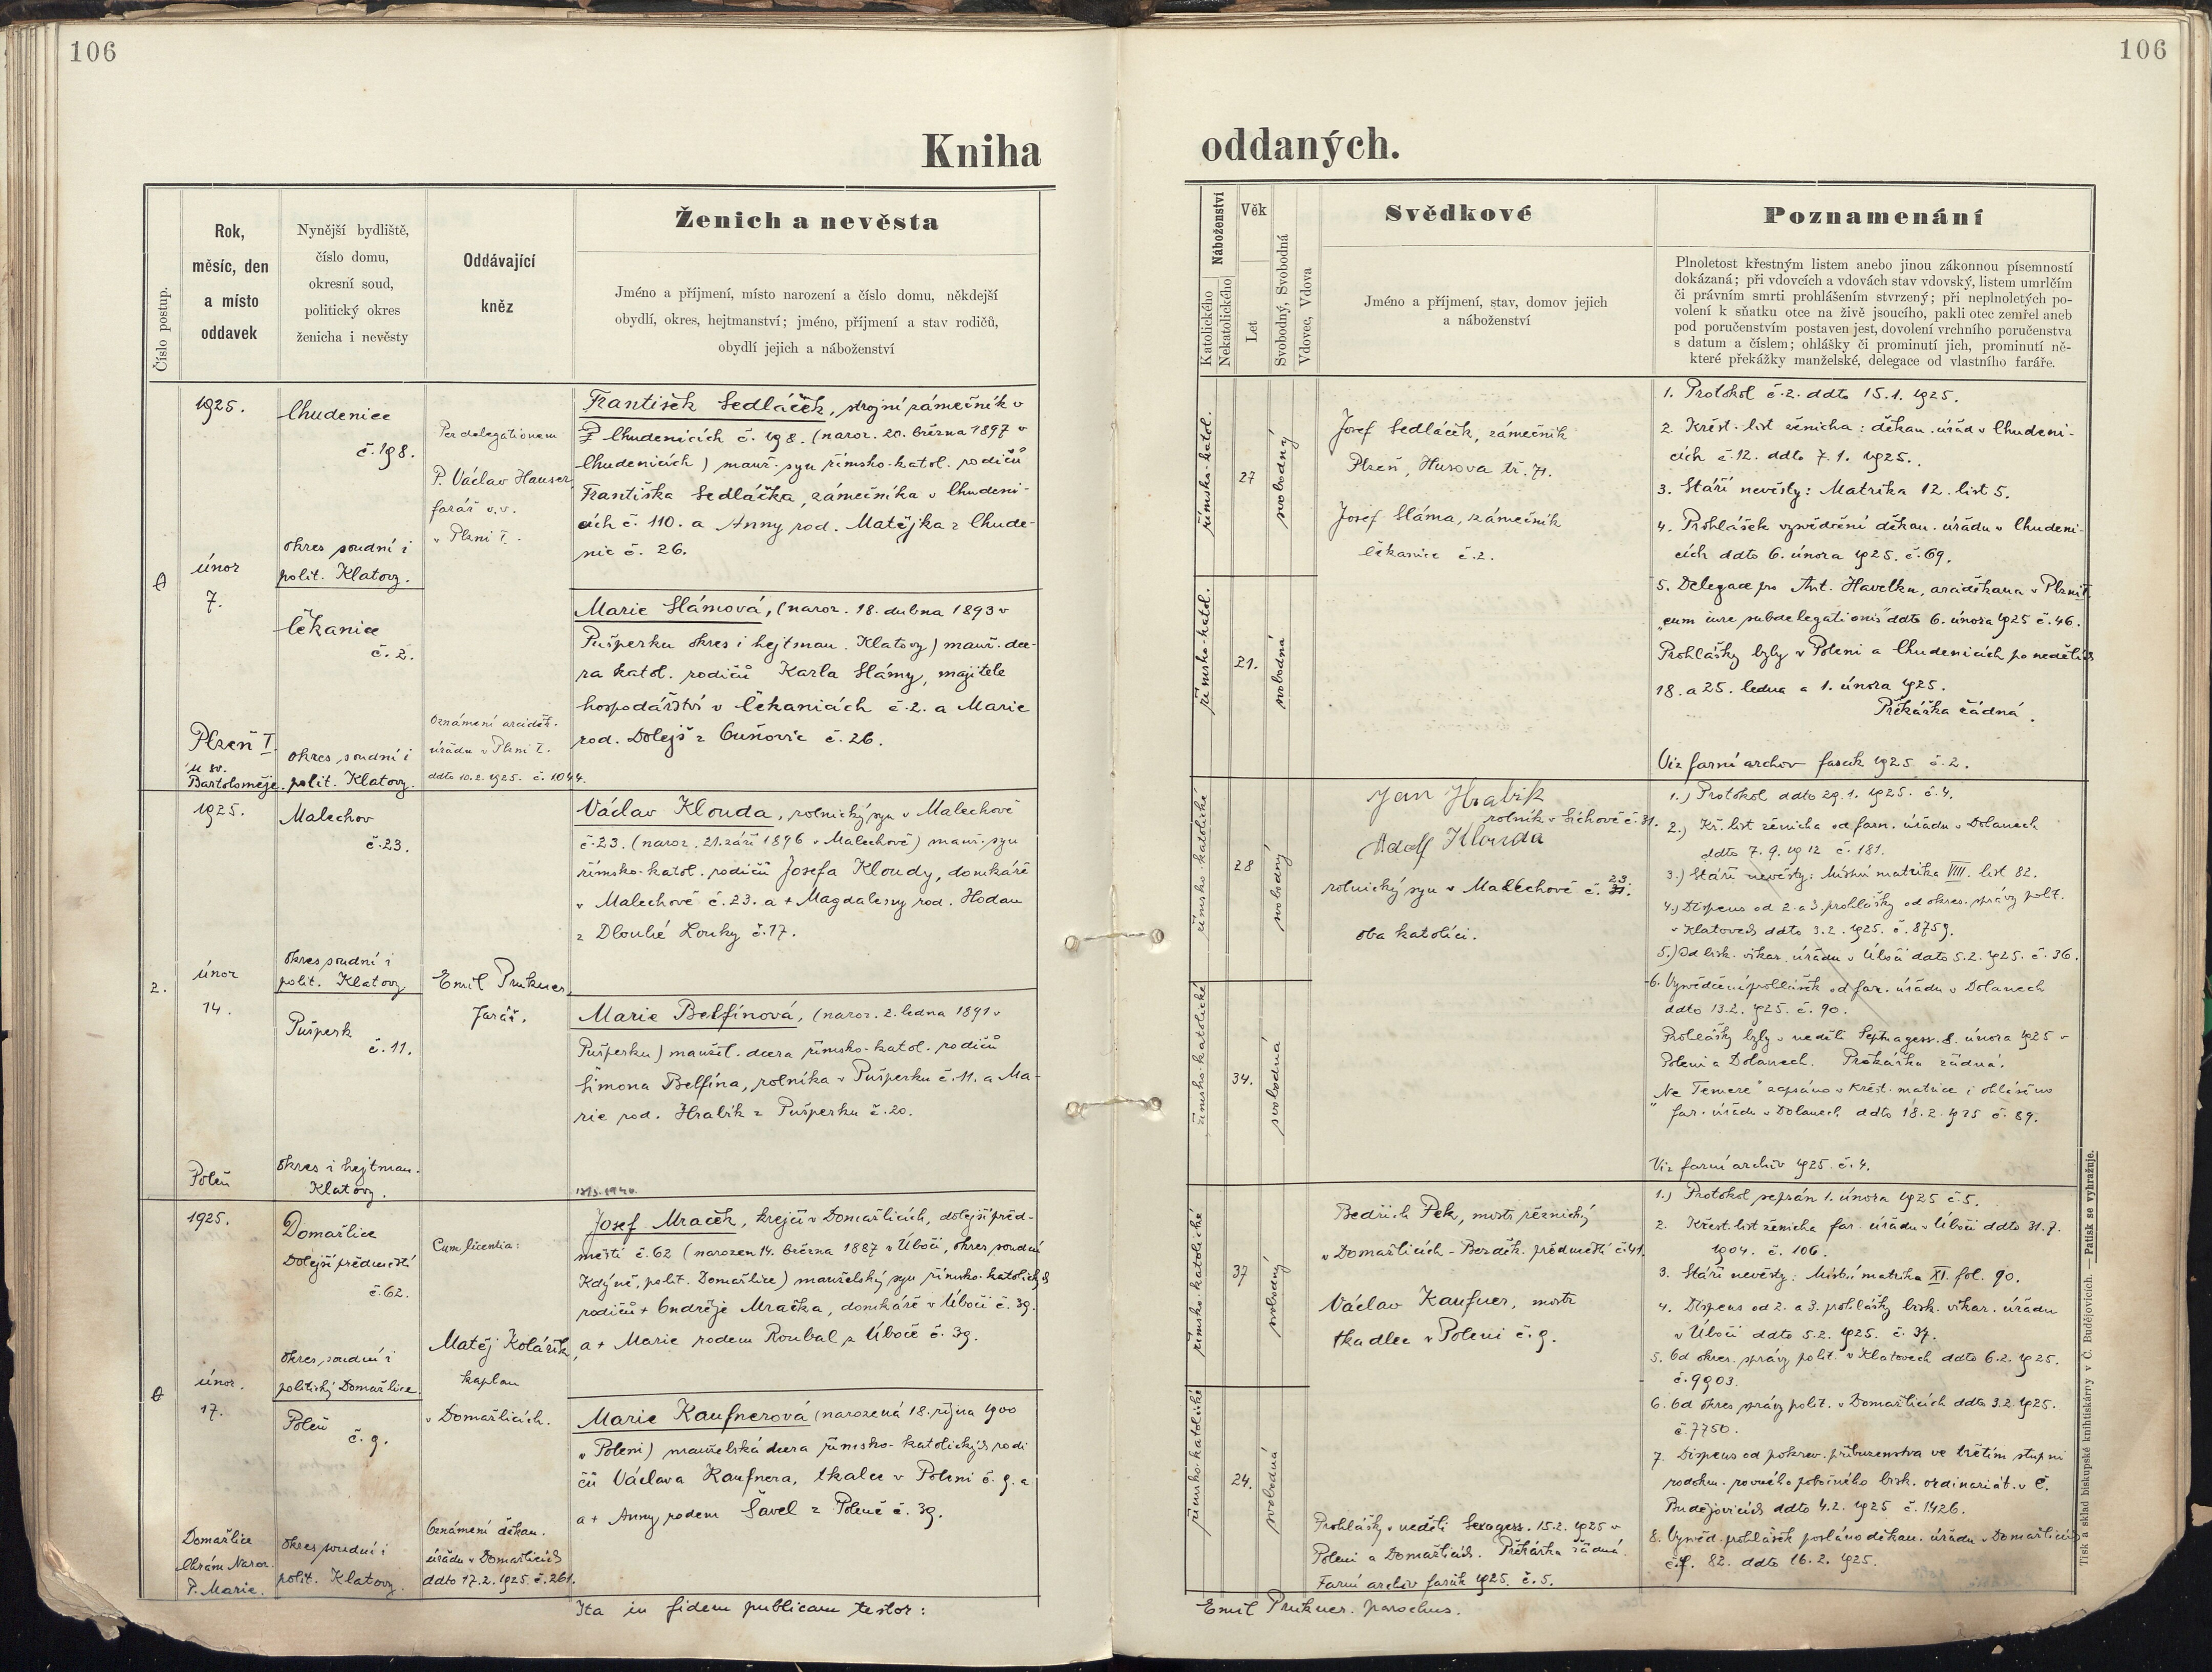 106
106
Kniha
oddaných.
Číslo postup.
Rok,
měsíc, den
a místo
oddavek
Nynější bydliště,
číslo domu,
okresní soud,
politický okres
ženicha i nevěsty
Oddávající
kněz
Ženich a nevěsta
Jméno a příjmení, místo narození a číslo domu, někdejší
obydlí, okres, hejtmanství; jméno, příjmení a stav rodičů,
obydlí jejich a náboženství
Náboženství
Katolického
Nekatolického
Věk
Let
Svobodný, Svobodná
Vdovec, Vdova
Svědkové
Jméno a příjmení, stav, domov jejich
a náboženství
Poznamenání
Plnoletost křestným listem anebo jinou zákonnou písemností
dokázaná; při vdovcích a vdovách stav vdovský, listem umrlčím
či právním smrti prohlášením stvrzený; při neplnoletých po-
volení k sňatku otce na živě jsoucího, pakli otec zemřel aneb
pod poručenstvím postaven jest, dovolení vrchního poručenstva
s datum a číslem; ohlášky či prominutí jich, prominutí ně-
které překážky manželské, delegace od vlastního faráře.
1925.
únor
7.
Plzeň I.
u sv.
Bartoloměje.
Chudenice
č. 198.
okres soudní i
polit. Klatovy.
Čekanice
č. 2.
okres soudní i
polit. Klatovy.
Per delegationem
P. Václav Hauser
farář v.v.
v Plzni I.
Oznámení arciděk.
úřadu v Plzni I.
ddto 10.2.1925. č. 1044.
František Sedláček, strojní zámečník v
Chudenicích č. 198. (naroz. 20. března 1897 v
Chudenicích) manž. syn římsko-katol. rodičů
Františka Sedláčka, zámečníka v Chudeni-
cích č. 110. a Anny rod. Matějka z Chude-
nic č. 26.
Marie Slámová, (naroz. 18. dubna 1893 v
Pušperku okres i hejtman. Klatovy) manž. dce-
ra katol. rodičů Karla Slámy, majitele
hospodářství v Čekanicích č. 2. a Marie
rod. Dolejš z Cuňovic č. 26.
římsko-katol.
27
svobodný
římsko-katol.
21.
svobodná
Josef Sedláček, zámečník
Plzeň, Husova tř. 71.
Josef Sláma, zámečník
Čekanice č. 2.
1. Protokol č. 2. ddto 15.1.1925.
2. Křest. list ženicha: děkan. úřad v Chudeni-
cích č. 12. ddto 7.1.1925.
3. Stáří nevěsty: Matrika 12. list 5.
4. Prohlášek vysvědčení děkan. úřadu v Chudeni-
cích ddto 6. února 1925. č. 69.
5. Delegace pro Ant. Havelku, arciděkana v Plzni I.
"cum iure subdelegationis" ddto 6. února 1925 č. 46.
Prohlášky byly v Poleni a Chudenicích po nedělích
18. a 25. ledna a 1. února 1925.
Překážka žádná.
Viz farní archiv fascik 1925 č. 2.
2.
1925.
únor
14.
Poleň
Malechov
č. 23.
okres soudní i
polit. Klatovy
Pušperk
č. 11.
okres i hejtman.
Klatovy.
Emil Prukner,
farář.
Václav Klouda, rolnický syn v Malechově
č. 23. (naroz. 21. září 1896 v Malechově) manž. syn
římsko-katol. rodičů Josefa Kloudy, domkáře
v Malechově č. 23. a + Magdaleny rod. Hodan
z Dlouhé Louky č. 17.
Marie Belfínová, (naroz. 2. ledna 1891 v
Pušperku) manžel. dcera římsko-katol. rodičů
Šimona Belfína, rolníka v Pušperku č. 11. a Ma-
rie rod. Hrabík z Pušperku č. 20.
římsko-katolické
28
svobodný
římsko-katolické
34.
svobodná
Jan Hrabík
rolník v Sichově č. 31.
Adolf Klouda
rolnický syn v Malechově č. 23.
oba katolíci.
1.) Protokol ddto 29.1.1925. č. 4.
2.) Kř. list ženicha od farn. úřadu v Dolanech
ddto 7.9.1912 č. 181.
3.) Stáří nevěsty: Místní matrika VIII. list 82.
4.) Dispens od 2. a 3. prohlášky od okres. správy polit.
v Klatovech ddto 3.2.1925. č. 8759.
5.) Od bisk. vikar. úřadu v Úboči dato 5.2.1925. č. 36.
6. Vysvědčení prohlášek od far. úřadu v Dolanech
ddto 13.2.1925. č. 90.
Prohlášky byly v neděli Septuagess. 8. února 1925 v
Poleni a Dolanech. Překážka žádná.
"Ne Temere" zapsáno v křest. matrice i ohlášeno
far. úřadu v Dolanech ddto 18.2.1925 č. 89.
Viz farní archiv 1925. č. 4.
1925.
únor.
17.
Domažlice
Chrám Naroz.
P. Marie.
Domažlice
Dolejší předměstí
č. 62.
okres soudní i
politický Domažlice.
Poleň
č. 9.
okres soudní i
polit. Klatovy.
Cum licentia:
Matěj Kolářík,
kaplan
v Domažlicích.
Oznámení děkan.
úřadu v Domažlicích
ddto 17.2.1925. č. 261.
Josef Mraček, krejčí v Domažlicích, dolejší před-
městí č. 62 (narozen 14. března 1887 v Úboči, okres soudní
Kdýně, polit. Domažlice) manželský syn římsko-katolických
rodičů + Ondřeje Mračka, domkáře v Úboči č. 39.
a + Marie rodem Roubal z Úboče č. 39.
Marie Kaufnerová (narozená 18. října 1900
v Poleni) manželská dcera římsko-katolických rodi
čů Václava Kaufnera, tkalce v Poleni č. 9. a
a + Anny rodem Šavel z Poleně č. 39.
římsko-katolické
37
svobodný
římsko-katolické
24.
svobodná
Bedřich Pek, mistr řeznický
v Domažlicích - Bezděk. předměstí č. 41.
Václav Kaufner, mistr
tkadlec v Poleni č. 9.
Prohlášky v neděli Sexagess. 15.2.1925 v
Poleni a Domažlicích. Překážka žádná.
Farní archiv fascik 1925. č. 5.
1.) Protokol sepsán 1. února 1925 č. 5.
2. Křest. list ženicha far. úřadu v Úboči ddto 31.7.
1904. č. 106.
3. Stáří nevěsty: Místní matrika XI. fol. 90.
4. Dispens od 2. a 3. prohlášky bisk. vikar. úřadu
v Úboči ddto 5.2.1925. č. 37.
5. Od okres. správy polit. v Klatovech ddto 6.2.1925.
č. 9903.
6. Od okres správy polit. v Domažlicích ddto 3.2.1925.
č. 7750.
7. Dispens od pokrev. příbuzenstva ve třetím stupni
rodokm. rovného pobočného bisk. ordinariát. v Č.
Budějovicích ddto 4.2.1925 č. 1426.
8. Vysvěd. prohlášek posláno děkan. úřadu v Domažlicích
č.j. 82. ddto 16.2.1925.
Ita in fidem publicam testor:
Emil Prukner. parochus.
Tisk a sklad biskupské knihtiskárny v Č. Budějovicích. — Patisk se vyhražuje.